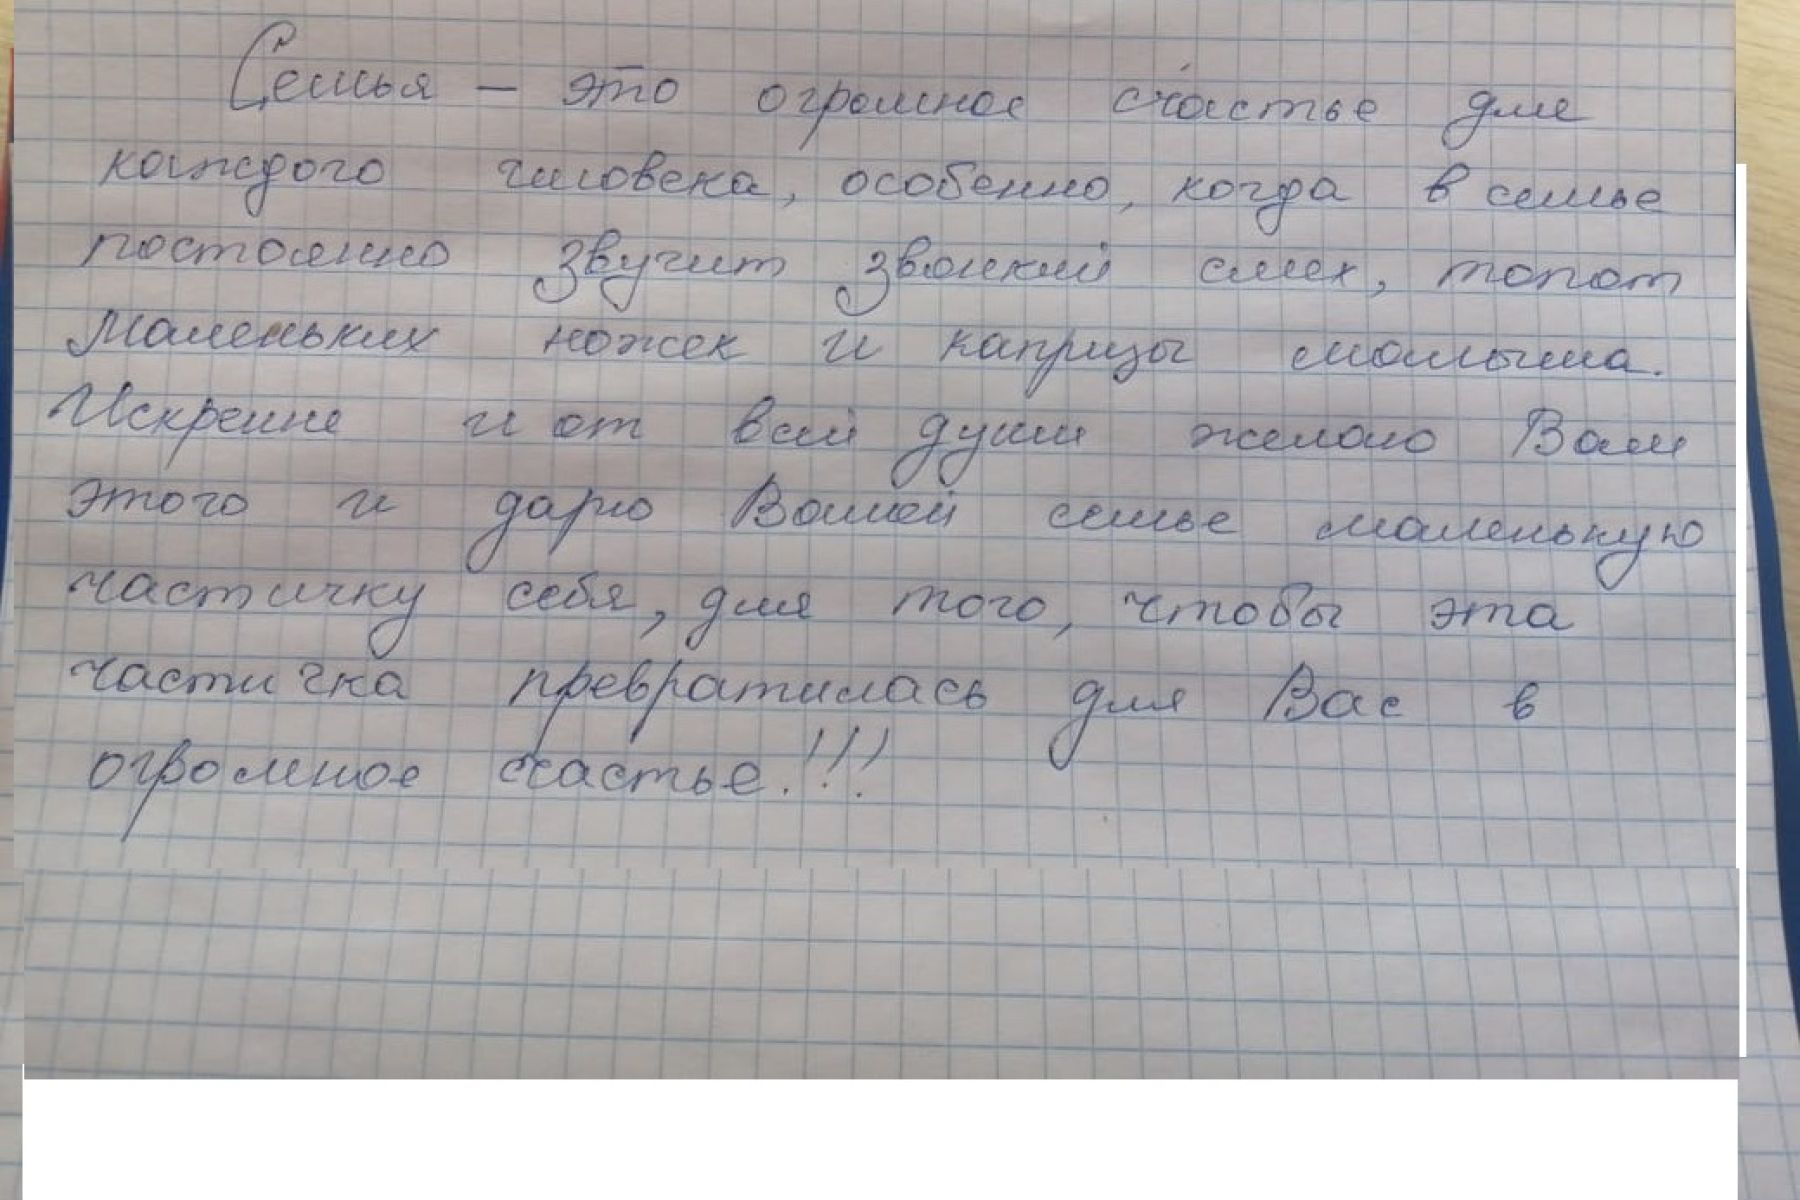 Семья – это огромное счастье для
каждого человека, особенно, когда в семье
постоянно звучит звонкий смех, топот
маленьких ножек и капризы малыша.
Искренне и от всей души желаю Вам
этого и дарю Вашей семье маленькую
частичку себя, для того, чтобы эта
частичка превратилась для Вас в
огромное счастье!!!